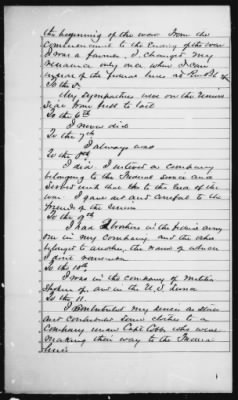 the beginning of the war. From the
Commencement to the Ending of the war
I was a farmer, I changed my
residence only once when I came
the Federal lines at
To the 5.
My Sympathies were on the Union
Side from first to last
To the 6th
I never did
To the 7th
I always was
To the 8th
I did I a Company
belonging to the Federal service and
served with that to the End of the
war. I gave aid and comfort to the
friends of the Union
To the 9th
I had 2 brothers in the Union army
one in my Company and the other
belonged to another, the name of which
I now remember
To the 10th
I was in the Company of Militia
and in the U.S. Service
To the 11.
I contributed my service as above
and contributed some clothes to a
Company under Capt Cobb who were
making their way to the Federal
lines